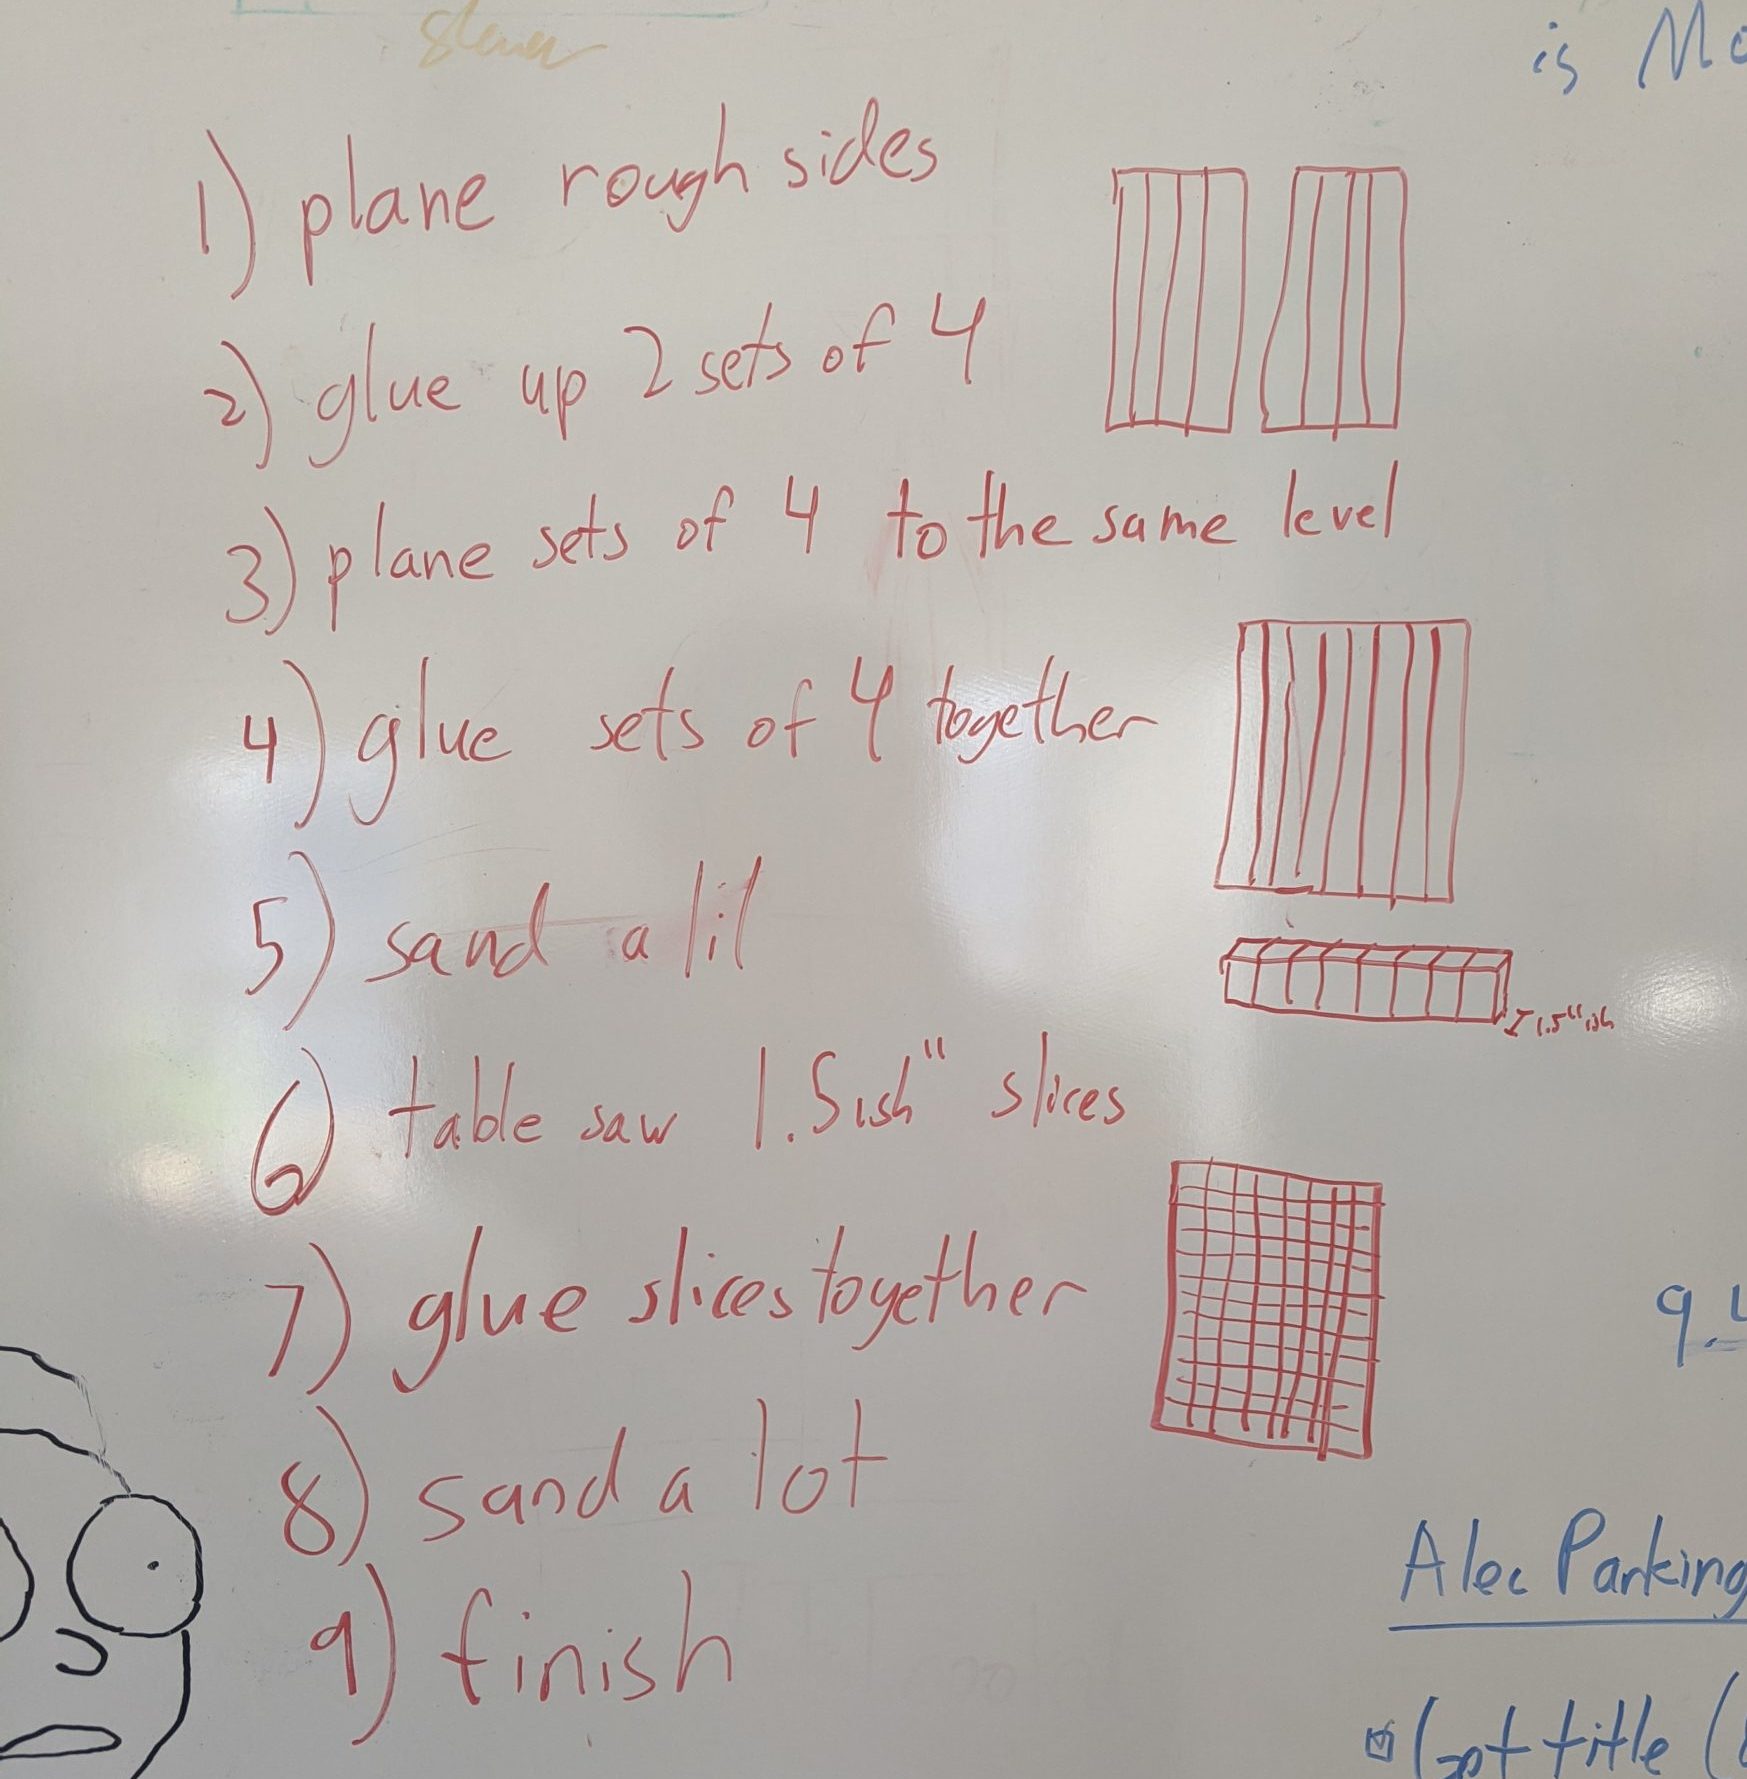 is
1) plane rough sides
2) glue up 2 sets of 4
3) plane sets of 4 to the same level
4) glue sets of 4 together
5) sand a lil
1.5" ish
6) table saw 1.5ish" slices
7) glue slices together
8) sand a lot
9) finish
Alec Parking
Got title (